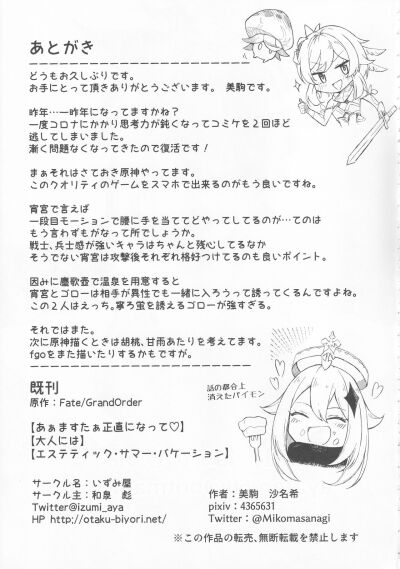 あとがき
どうもお久しぶりです。
お手にとって頂きありがとうございます。　美駒です。
昨年…一昨年になってますかね？
一度コロナにかかり思考力が鈍くなってコミケを２回ほど
逃してしまいました。
漸く問題なくなってきたので復活です！
まぁそれはさておき原神やってます。
このクオリティのゲームをスマホで出来るのがもう良いですね。
宵宮で言えば
一段目モーションで腰に手を当ててどやってしてるのが…てのは
もう言わずもがなって所でしょうか。
戦士、兵士感が強いキャラはちゃんと残心してるなか
そうでない宵宮は攻撃後それぞれ格好つけてるのも良いポイント。
因みに塵歌壺で温泉を用意すると
宵宮とゴローは相手が異性でも一緒に入ろうって誘ってくるんですよね。
この２人はえっち。寧ろ蛍を誘えるゴローが強すぎる。
それではまた。
次に原神描くときは胡桃、甘雨あたりを考えてます。
fgoをまた描いたりするかもですが。
話の都合上
消えたパイモン
既刊
原作：Fate/GrandOrder
【あぁますたぁ正直になって♡】
【大人には】
【エステティック・サマー・バケーション】
サークル名：いずみ屋
サークル主：和泉　彪
Twitter@izumi_aya
HP http://otaku-biyori.net/
作者：美駒　沙名希
pixiv：4365631
Twitter：@Mikomasanagi
※この作品の転売、無断転載を禁止します